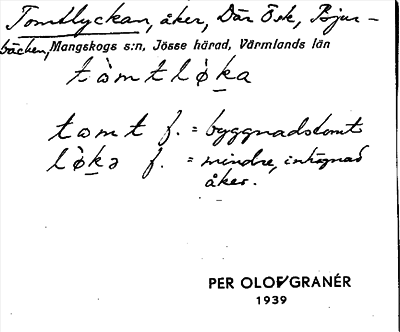 Tomtlyckan, åker, Där Öst, Bjur-
bäcken, Mangskogs s:n, Jösse härad, Värmlands län
tòmtlø̀ka
tomt f. = byggnadstomt
lø̀kə f. = mindre, inhägnad
åker.
PER OLOF GRANÉR
1939